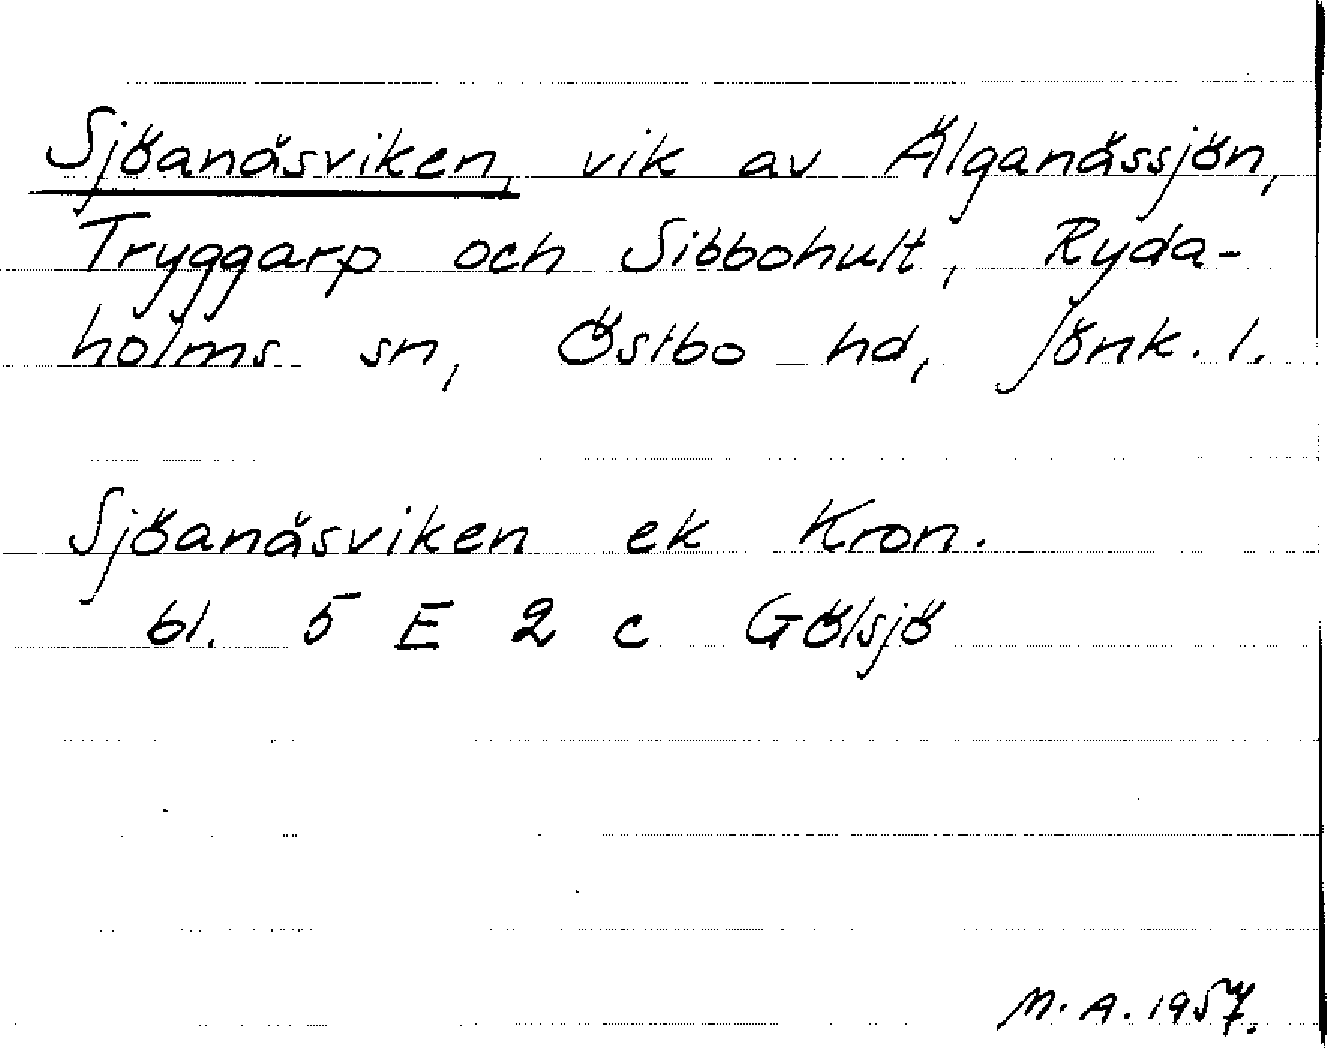 Sjöanäsviken, vik av Älganässjön,
Tryggarp och Sibbohult, Ryda-
holms sn, Östbo hd, Jönk. l.
Sjöanäsviken ek Kron.
bl. 5 E 2 c Gölsjö
M. A. 1957.